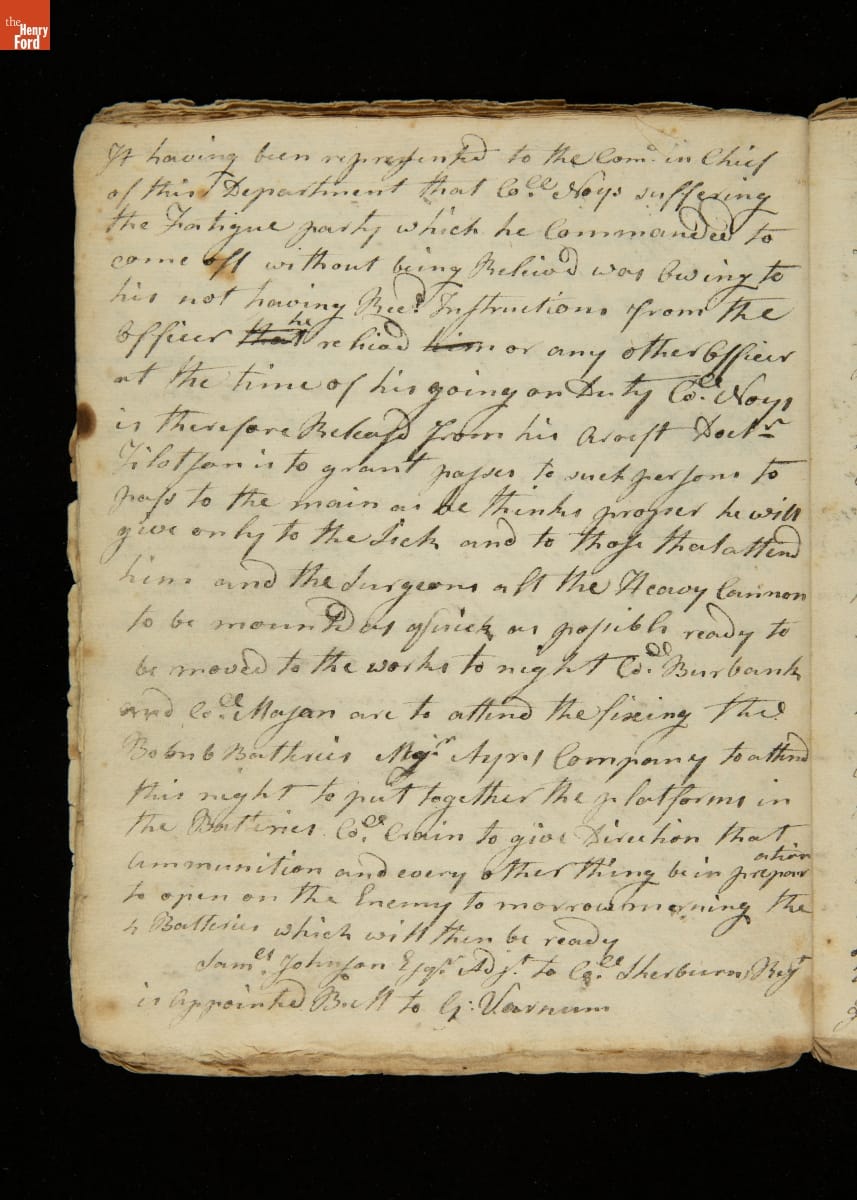 the
Henry
Ford
It having been represented to the Com.r in Chief
of this Department that Co.ll Noys suffering
the Fatigue party which he Commanded to
come off without being Reliev'd was owing to
his not having Rec.d Instructions from the
Officer that he reliev'd him or any other Officer
at the time of his going on Duty Co.ll Noys
is therefore Releasd from his Arrest Doct.r
Tilotson is to grant passes to such persons to
pass to the main as he thinks proper he will
give only to the Sick and to those that attend
him and the Surgeons all the Heavy Cannon
to be mounted as quick as possible ready to
be moved to the works to night Co.ll Burbank
and Co.ll Mason are to attend the fixing the
Bobnb Batteries Maj.r Ayrs Company to attend
this night to put together the platforms in
the Batteries Co.ll Crain to give Direction that
Ammunition and every other thing be in preparation
to open on the Enemy to morrow morning the
4 Batteries which will then be ready
Sam.el Johnson Esq.r Adj.t to Co.ll Sherburns Reg.t
is appointed to G: Varnum